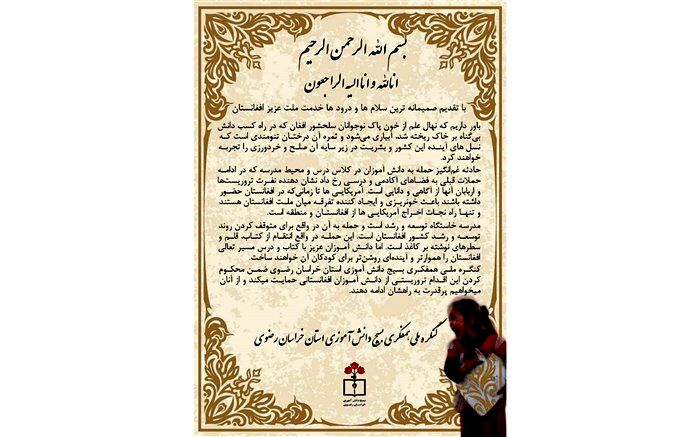 بسم الله الرحمن الرحیم
انالله و اناالیه الراجعون
با تقدیم صمیمانه ترین سلام ها و درود ها خدمت ملت عزیز افغانستان
باور داریم که نهال علم از خون پاک نوجوانان سلحشور افغان که در راه کسب دانش
بی‌گناه بر خاک ریخته شد، آبیاری می‌شود و ثمره آن درختان تنومندی است که
نسل های آینده این کشور و بشریت در زیر سایه آن صلح و خردورزی را تجربه
خواهند کرد.
حادثه غم‌انگیز حمله به دانش آموزان در کلاس درس و محیط مدرسه که در ادامه
حملات قبلی به فضاهای آکادمی و درسی رخ داد نشان دهنده نفرت تروریست‌ها
و اربابان آنها از آگاهی و دانایی است. آمریکایی ها تا زمانی‌که در افغانستان حضور
داشته باشند باعث خونریزی و ایجاد کننده تفرقه میان ملت افغانستان هستند
و تنها راه نجات اخراج آمریکایی ها از افغانستان و منطقه است.
مدرسه خاستگاه توسعه و رشد است و حمله به آن در واقع برای متوقف کردن روند
توسعه و رشد کشور افغانستان است. این حمله در واقع انتقام از کتاب، قلم و
سطرهای نوشته بر کاغذ است. اما دانش آموزان عزیز با کتاب و درس مسیر تعالی
افغانستان را هموارتر و آینده‌ای روشن‌تر برای کودکان آن خواهند ساخت.
کنگره ملی همفکری بسیج دانش آموزی استان خراسان رضوی ضمن محکوم
کردن این اقدام تروریستی از دانش آموزان افغانستانی حمایت میکند و از آنان
میخواهیم پرقدرت به راهشان ادامه دهند.
کنگره ملی همفکری بسیج دانش آموزی استان خراسان رضوی
بسیج دانش آموزی
خراسان رضوی